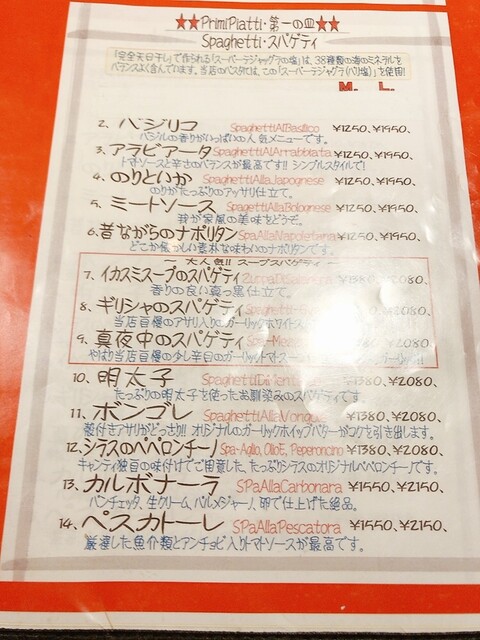 ★★PrimiPiatti・第一の皿★★
Spaghetti・スパゲティ
「完全天日干し」で作られる「スーパーラジャグラの塩」は、38種類の海のミネラルを
バランスよく含んでいます。当店のパスタでは、この「スーパーラジャグラ(バリ塩)」を使用!
M. L.
2. バジリコ SpaghettiAlBasilico ¥1250、¥1950、
バジルの香りがいっぱいの人気メニューです。
3. アラビアータ SpaghettiAlArrabbiata ¥1250、¥1950、
トマトソースと辛さのバランスが最高です!! シンプルスタイルで!
4. のりといか SpaghettiAllaJapognese ¥1250、¥1950、
のりがたっぷりのアッサリ仕立て。
5. ミートソース SpagettiAllaBolognese ¥1250、¥1950、
我が家風の美味をどうぞ。
6. 昔ながらのナポリタン SpaAllaNapoletana ¥1250、¥1950、
どこか懐っしい素朴な味わいのナポリタンです。
～ 大人気!! スープスパゲティ ～
7. イカスミスープのスパゲティ ¥1380、¥2080、
香りの良い真っ黒仕立て。
8. ギリシャのスパゲティ Spaghetti ¥2080、
当店自慢のアサリ入りのガーリックホワイトス
9. 真夜中のスパゲティ Spa-Mezz ¥2080、
やはり当店自慢の少し辛目のガーリックトマトスー
10. 明太子 ¥1380、¥2080、
たっぷりの明太子を使ったお馴染みのスパゲティです。
11. ボンゴレ SpaghettiAllaVongole ¥1380、¥2080、
殻付きアサリがどっさり!! オリジナルのガーリックホイップバターがコクを引き出します。
12. シラスのペペロンチーノ Spa-Aglio, Olio, Peperoncino ¥1380、¥2080、
キャンティ独自の味付けでご用意した、たっぷりシラスのオリジナルペペロンチーノです。
13. カルボナーラ SPaAllaCarbonara ¥1550、¥2150、
パンチェッタ、生クリーム、パルメジャーノ、卵で仕上げた絶品。
14. ペスカトーレ SPaAllaPescatora ¥1550、¥2150、
厳選した魚介類とアンチョビ入りトマトソースが最高です。